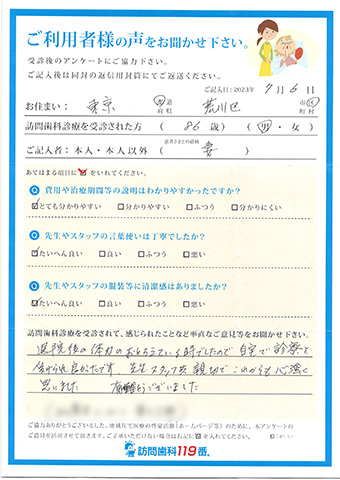 ご利用者様の声をお聞かせ下さい。
受診後のアンケートにご協力下さい。
ご記入後は同封の返信用封筒にてご返送ください。
ご記入日:2023年 7月 6日
お住まい: 東京 都道府県 荒川区 市区町村
訪問歯科診療を受診された方 ( 86 歳) ( 男・女 )
ご記入者:本人・本人以外 ( 妻 )
あてはまる項目に☑をいれてください。
Q 費用や治療期間等の説明はわかりやすかったですか?
☑とても分かりやすい □分かりやすい □ふつう □分かりにくい
Q 先生やスタッフの言葉使いは丁寧でしたか?
☑たいへん良い □良い □ふつう □悪い
Q 先生やスタッフの服装等に清潔感はありましたか?
☑たいへん良い □良い □ふつう □悪い
訪問歯科診療を受診されて、感じられたことなど率直なご意見等をお聞かせ下さい。
退院後の体力のおとろえている時でしたので 自宅で 診察を
受けられ良かったです。先生 スタッフ共 親切で これからも 心強く
思いました 有難うございました
ご協力ありがとうございました。地域在宅医療の啓蒙活動(ホームページ等)のために、本アンケートの
ご意見を活用させて頂きます。ご了承いただけない場合は右記に☑を入れてください。
訪問歯科119番。